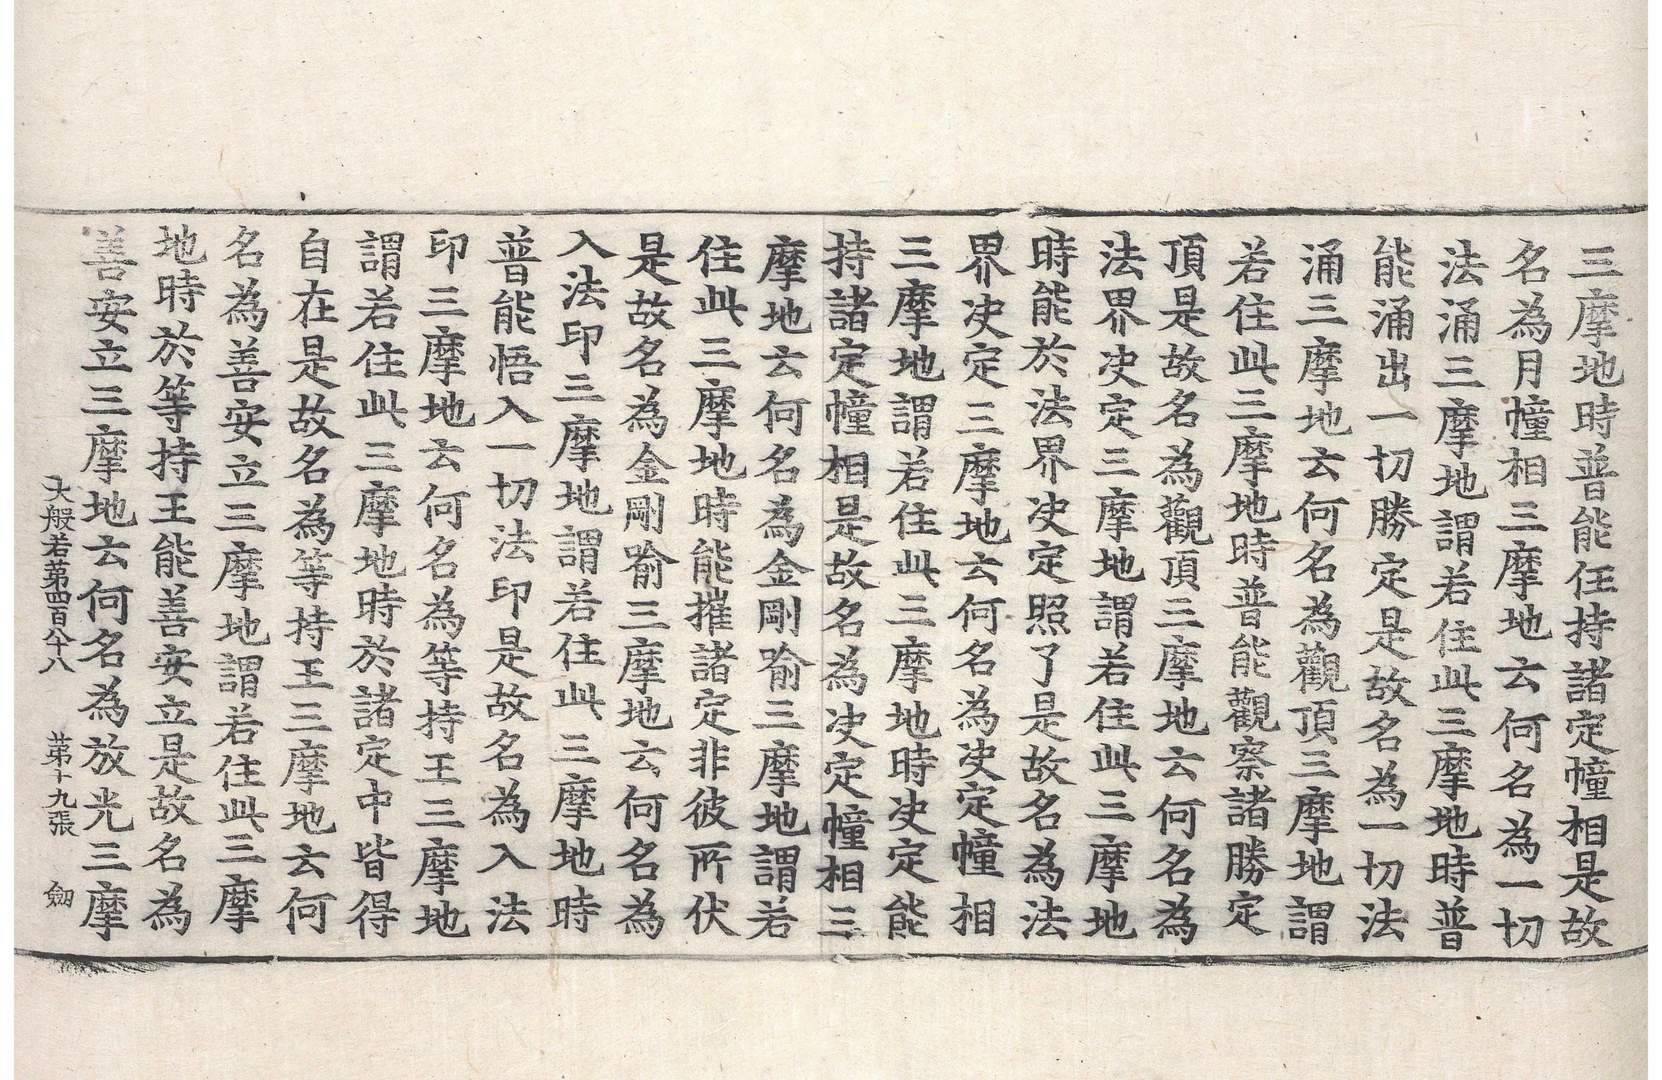 三摩地時普能任持諸定幢相是故
名為月幢相三摩地云何名為一切
法涌三摩地謂若住此三摩地時普
能涌出一切勝定是故名為一切法
涌三摩地云何名為觀頂三摩地謂
若住此三摩地時普能觀察諸勝定
頂是故名為觀頂三摩地云何名為
法界决定三摩地謂若住此三摩地
時能於法界决定照了是故名為法
界决定三摩地云何名為决定幢相
三摩地謂若住此三摩地時决定能
持諸定幢相是故名為决定幢相三
摩地云何名為金剛喻三摩地謂若
住此三摩地時能摧諸定非彼所伏
是故名為金剛喻三摩地云何名為
入法印三摩地謂若住此三摩地時
普能悟入一切法印是故名為入法
印三摩地云何名為等持王三摩地
謂若住此三摩地時於諸定中皆得
自在是故名為等持王三摩地云何
名為善安立三摩地謂若住此三摩
地時於等持王能善安立是故名為
善安立三摩地云何名為放光三摩
大般若第四百八十八 第十九張 劒